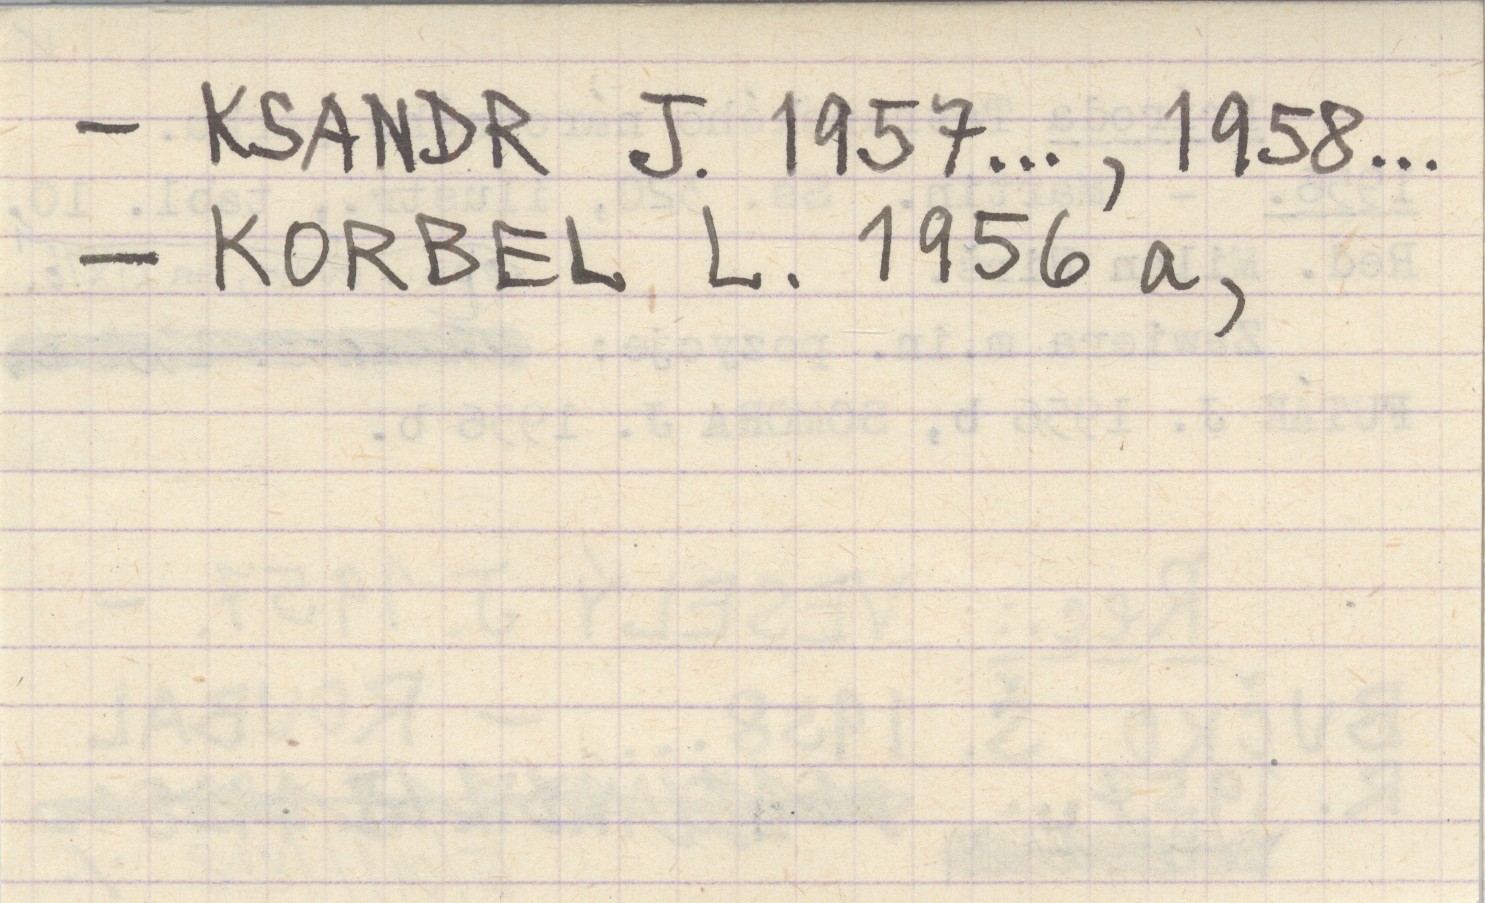 – KSANDR J. 1957..., 1958...
– KORBEL L. 1956 a,